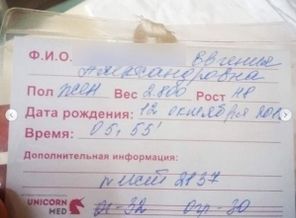 Ф.И.О. Евгения
Александровна
Пол жен Вес 2800 Рост 48
Дата рождения: 12 октября 20
Время: 05, 55'
Дополнительная информация:
2737
UNICORN MED ог-32 огр-30